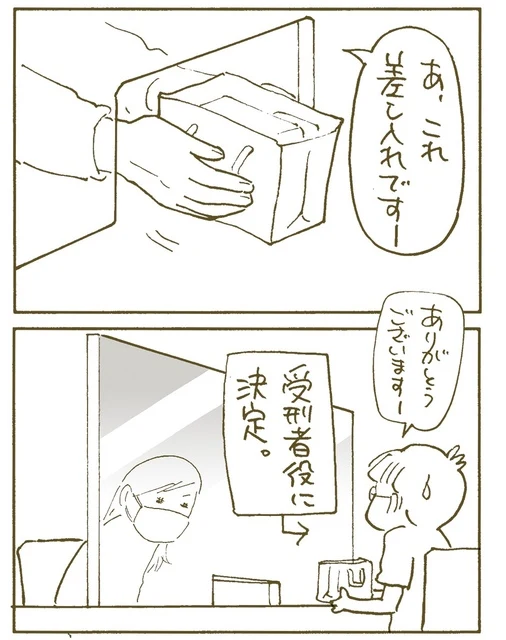 あ、これ
差し入れですー
ありがとう
ございますー
受刑者役に
決定。